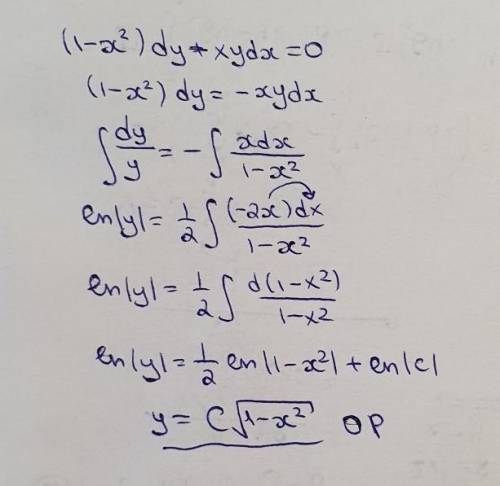 (1-x²) dy + xydx = 0
(1-x²) dy = -xydx
∫ dy/y = - ∫ xdx/(1-x²)
ln|y| = 1/2 ∫ (-2x)dx/(1-x²)
ln|y| = 1/2 ∫ d(1-x²)/(1-x²)
ln|y| = 1/2 ln|1-x²| + ln|C|
y = C√(1-x²) OP